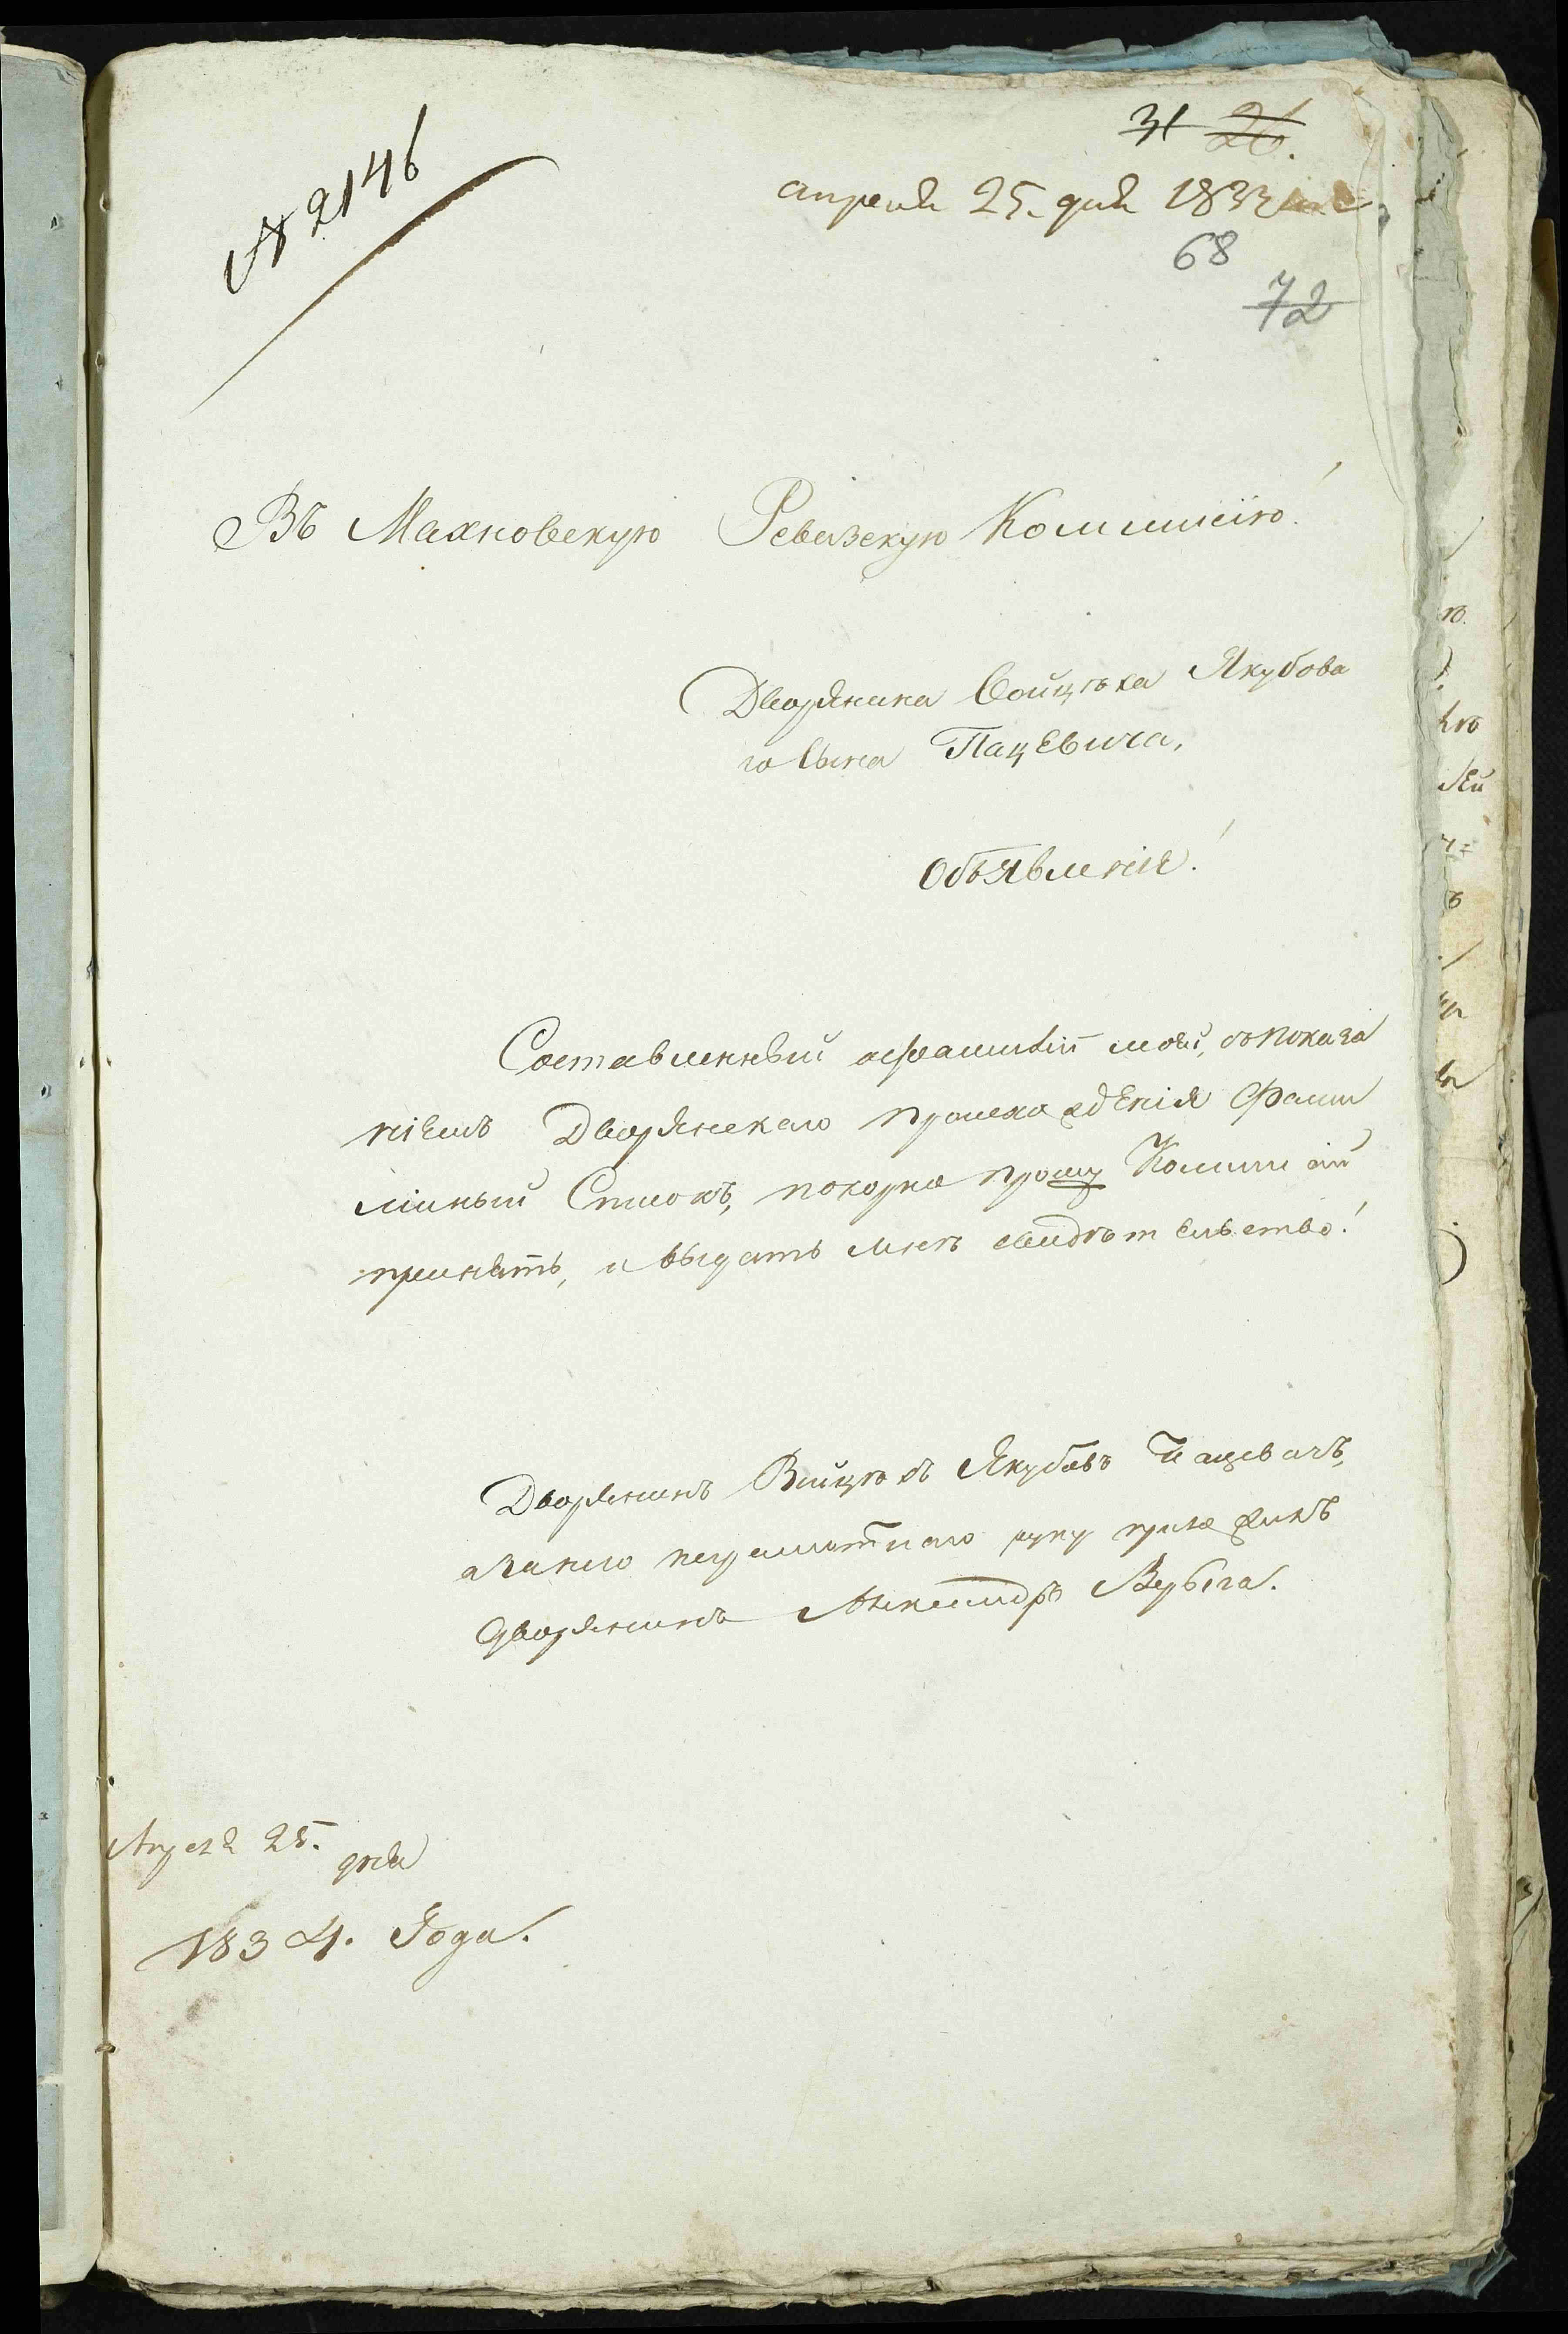 № 2146
31 26
апреля 25. дня 1834
68
72
Въ Махновскую Ревизскую Коммисію!
Дворянина Войцѣха Якубова
го сына Пацевича,
Объявленіе!
Составленный о фамиліи моей, съ показа
ніемъ Дворянскаго происхожденія Фами
лійный Списокъ, покорно прошу Коммисій
принять, и выдать мнѣ свидѣтельство!
Дворянинъ Войцѣхъ Якубовъ Пацевичъ,
а за него неграмотнаго руку приложилъ
дворянинъ Александръ
Апреля 25.
дня
1834. Года.